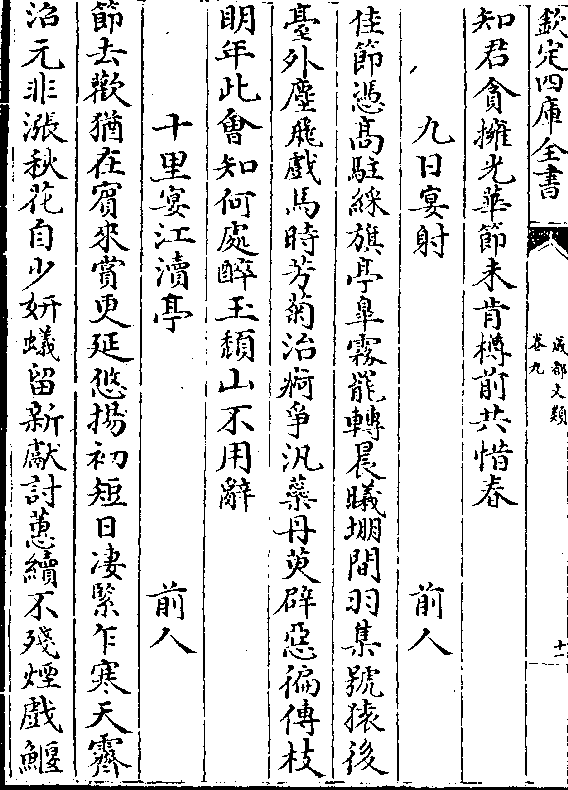 欽定四庫全書
成都文類
卷九
十一
知君貪擁光華節未肯樽前共惜春
九日宴射　前人
佳節憑高駐綵旗亭臯霧罷轉晨曦堋間羽集號猿後
臺外塵飛戲馬時芳菊治疴爭汎蘂丹萸辟惡徧傳枝
明年此會知何處醉玉頹山不用辭
十里宴江瀆亭　前人
節去歡猶在賓來賞更延悠揚初短日凄緊乍寒天霽
沼元非漲秋花自少妍蟻留新獻討蔥續不殘煙戲鰋